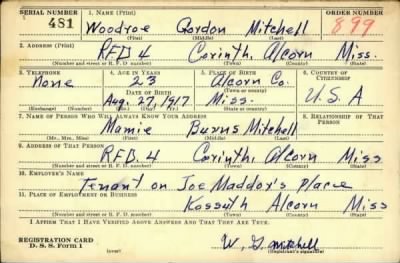 SERIAL NUMBER 1. NAME (Print) ORDER NUMBER
481 Woodroe Gordon Mitchell 899
(First) (Middle) (Last)
2. ADDRESS (Print)
RFD 4 Corinth, Alcorn Miss.
(Number and street or R. F. D. number) (Town) (County) (State)
3. TELEPHONE 4. AGE IN YEARS 5. PLACE OF BIRTH 6. COUNTRY OF CITIZENSHIP
None 23 Alcorn Co.
DATE OF BIRTH (Town or county)
Aug. 27, 1917 Miss. U.S.A
(Exchange) (Number) (Mo.) (Day) (Yr.) (State or country)
7. NAME OF PERSON WHO WILL ALWAYS KNOW YOUR ADDRESS 8. RELATIONSHIP OF THAT PERSON
Mamie Burns Mitchell
(Mr., Mrs., Miss) (First) (Middle) (Last)
9. ADDRESS OF THAT PERSON
RFD. 4 Corinth, Alcorn Miss
(Number and street or R. F. D. number) (Town) (County) (State)
10. EMPLOYER'S NAME
Tenant on Joe Maddox's place
11. PLACE OF EMPLOYMENT OR BUSINESS
Kossuth Alcorn Miss
(Number and street or R. F. D. number) (Town) (County) (State)
I AFFIRM THAT I HAVE VERIFIED ABOVE ANSWERS AND THAT THEY ARE TRUE.
REGISTRATION CARD
D. S. S. Form 1 (over) W. G. Mitchell
(Registrant's signature)